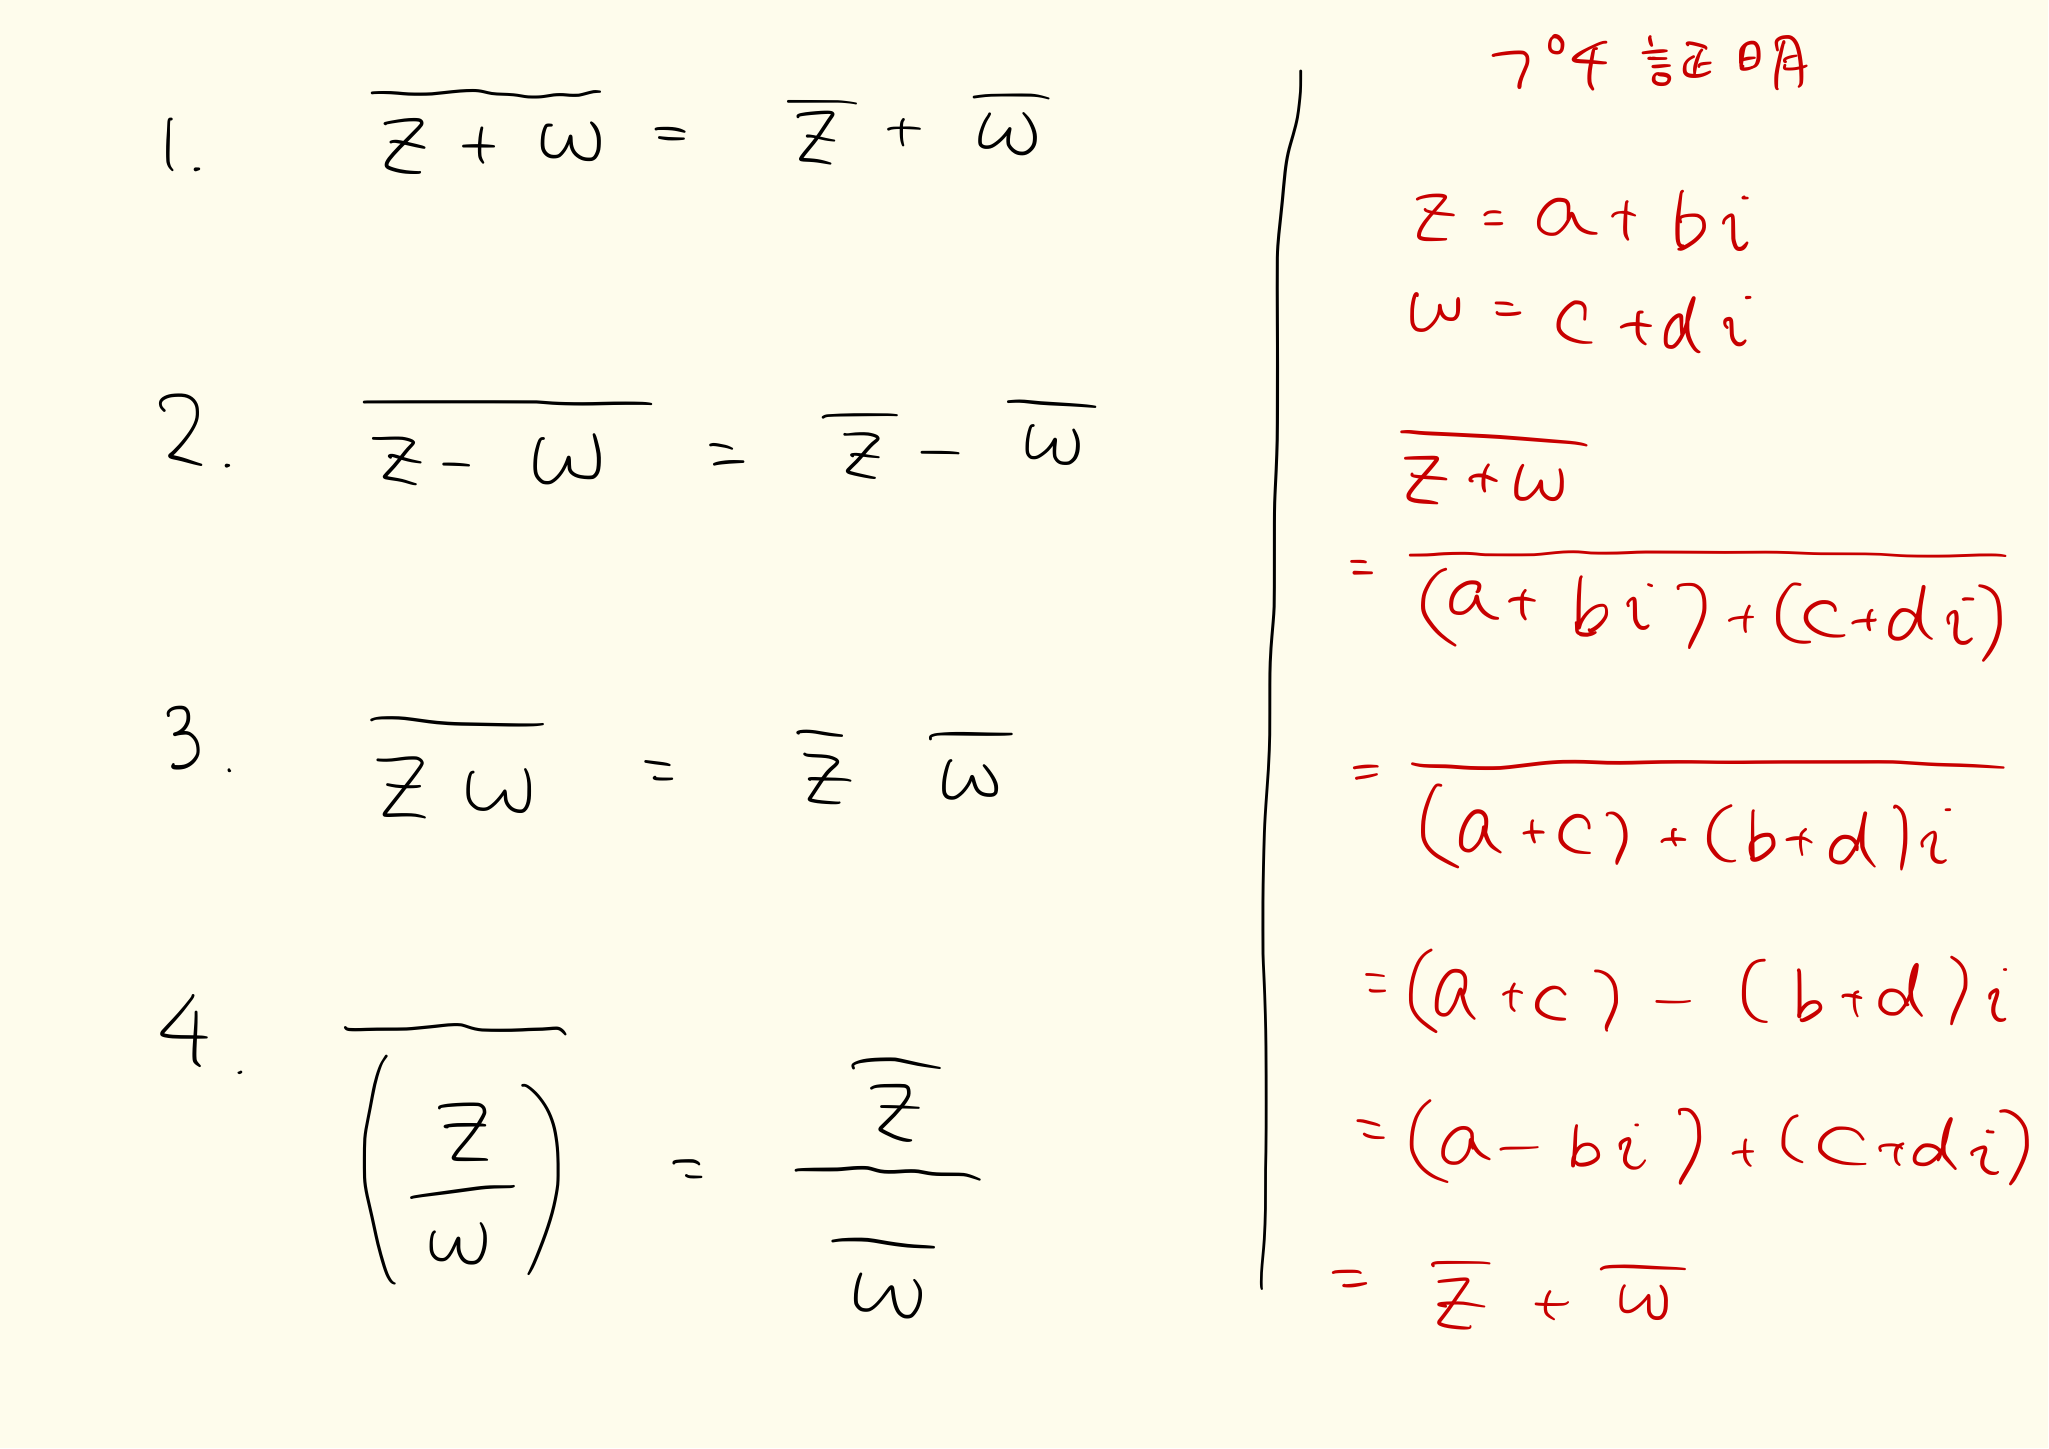 1. \overline{z + w} = \overline{z} + \overline{w}
2. \overline{z - w} = \overline{z} - \overline{w}
3. \overline{z w} = \overline{z} \overline{w}
4. \overline{\left(\frac{z}{w}\right)} = \frac{\overline{z}}{\overline{w}}
プチ証明
z = a + bi
w = c + di
\overline{z + w}
= \overline{(a + bi) + (c + di)}
= \overline{(a + c) + (b + d)i}
= (a + c) - (b + d)i
= (a - bi) + (c + di)
= \overline{z} + \overline{w}